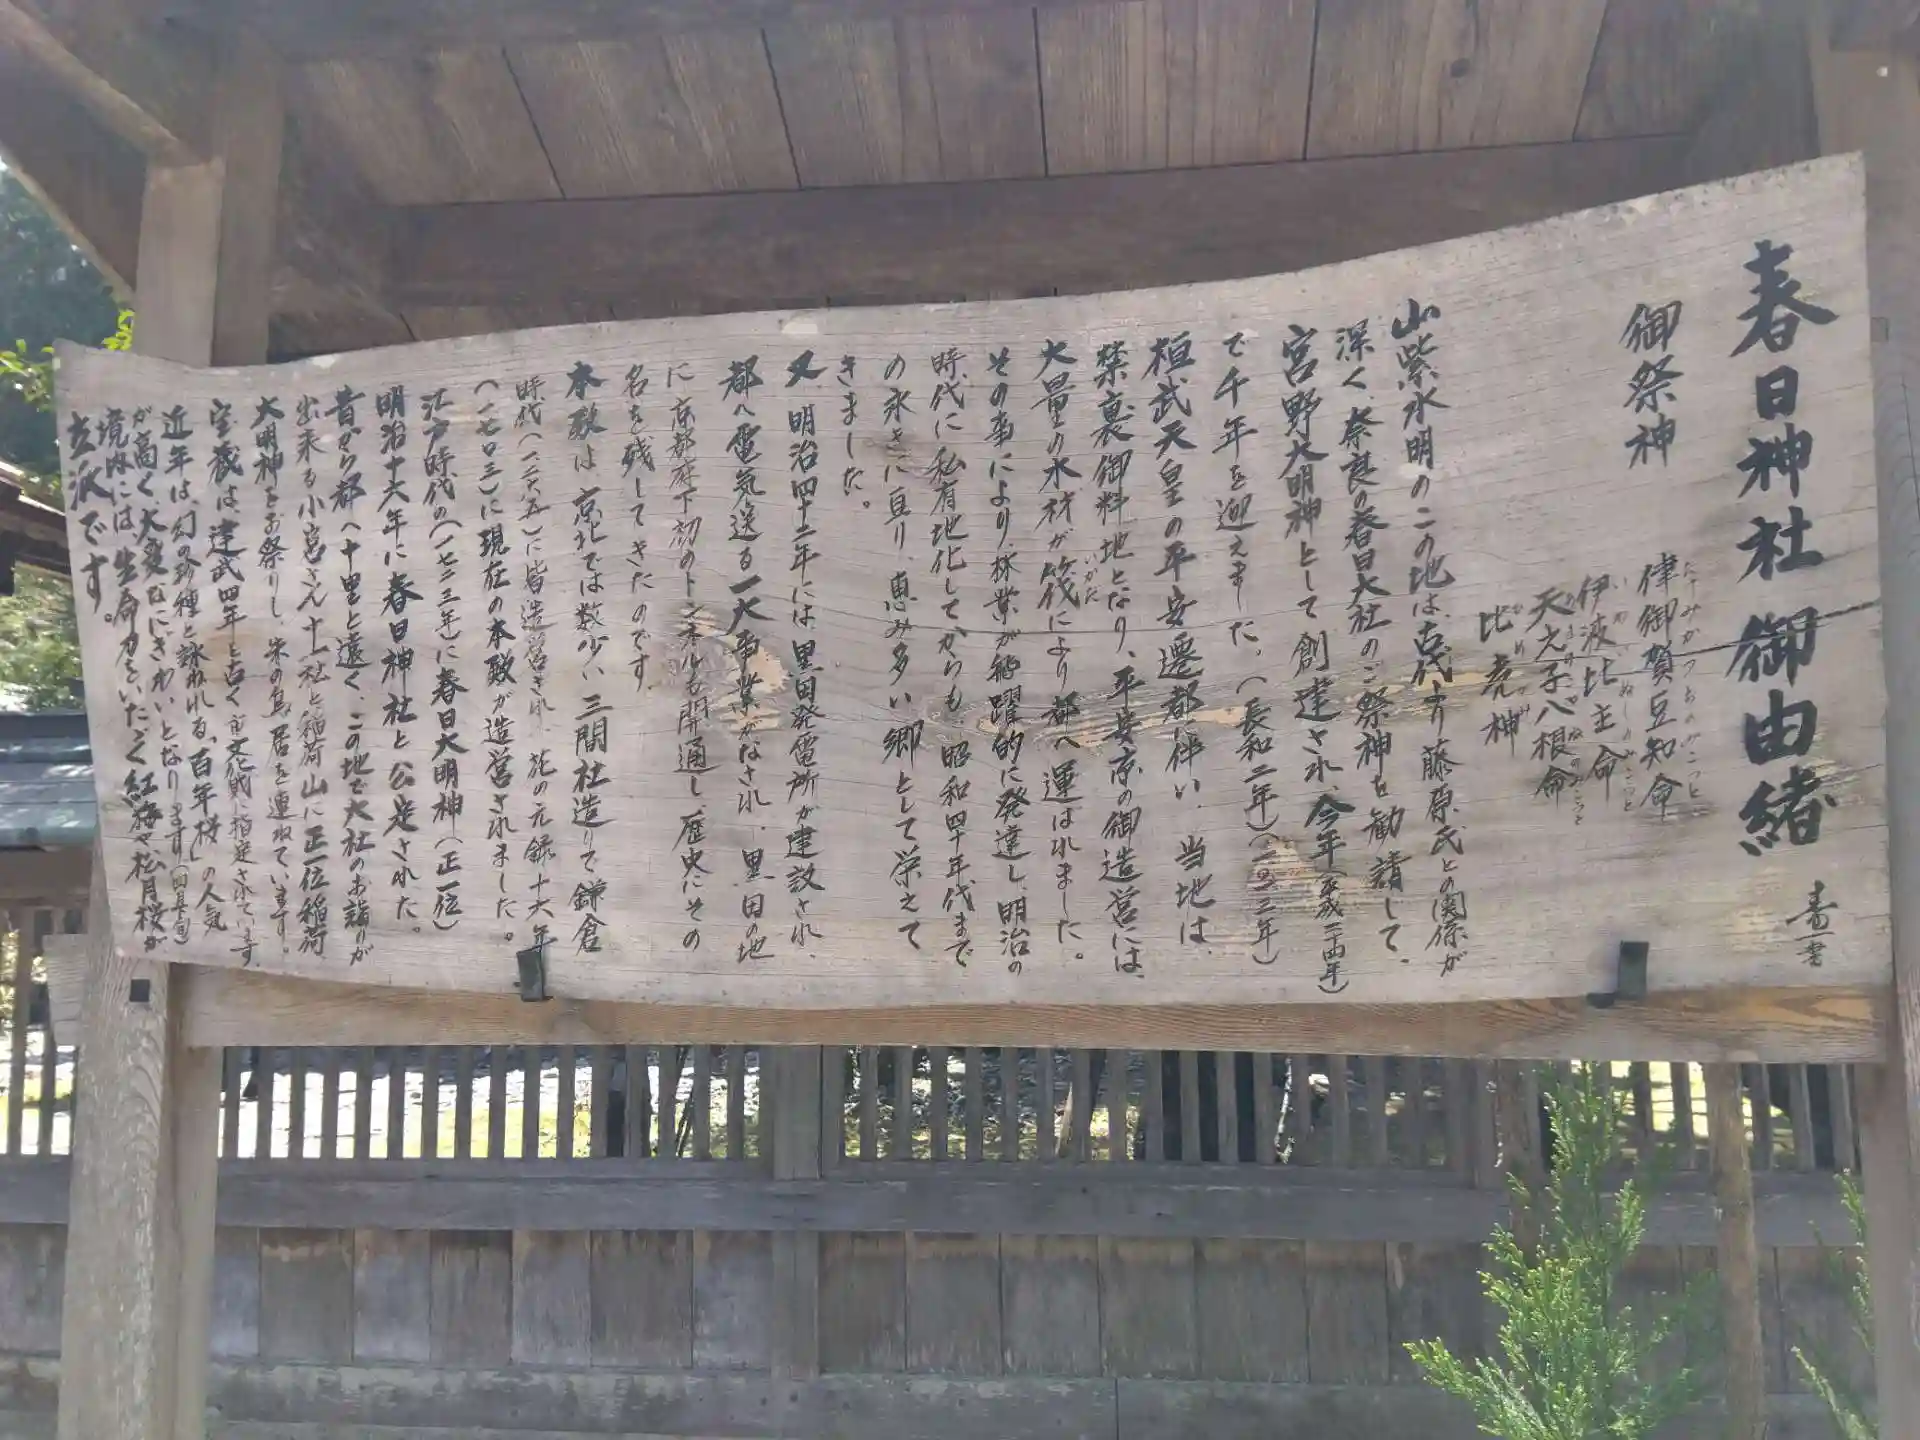 春日神社御由緒
壽一書
御祭神
健御賀豆知命
伊波比主命
天之子八根命
比売神
山紫水明のこの地は、古代より藤原氏との関係が
深く、奈良の春日大社のご祭神を勧請して、
宮野大明神として創建され、今年(平成二四年)
で千年を迎えました。(長和二年)(一〇一三年)
桓武天皇の平安遷都に伴い、当地は、
禁裏御料地となり、平安京の御造営には、
大量の木材が筏いかだにより都へ運ばれました。
その事により、林業が飛躍的に発達し、明治の
時代に私有地化してからも、昭和四十年代まで
の永きに亘り、恵み多い郷として栄えて
きました。
又、明治四十二年には黒田発電所が建設され、
都へ電気送る一大事業がなされ、黒田の地
に京都府下初のトンネルも開通し、歴史にその
名を残してきたのです。
本殿は、京北では数少い三間社造りで鎌倉
時代(一二六五)に皆造営され、元の元録十六年
(一七〇三)に現在の本殿が造営されました。
江戸時代の(一七二三年)に春日大明神(正一位)
明治十六年に春日神社と公定された。
昔から都へ十里と遠く、この地で大社のお詣りが
出来る小宮さん十一社と稲荷山に正一位稲荷
大明神をお祭りし、朱の鳥居を連ねています。
宝蔵は、建武四年と古く、文化財に指定されています。
近年は、幻の珍種と詠われる、「百年桜」の人気
が高く、大変なにぎわいとなります(四月下旬)
境内には、生命力をいただく紅梅や松月桜が
立派です。